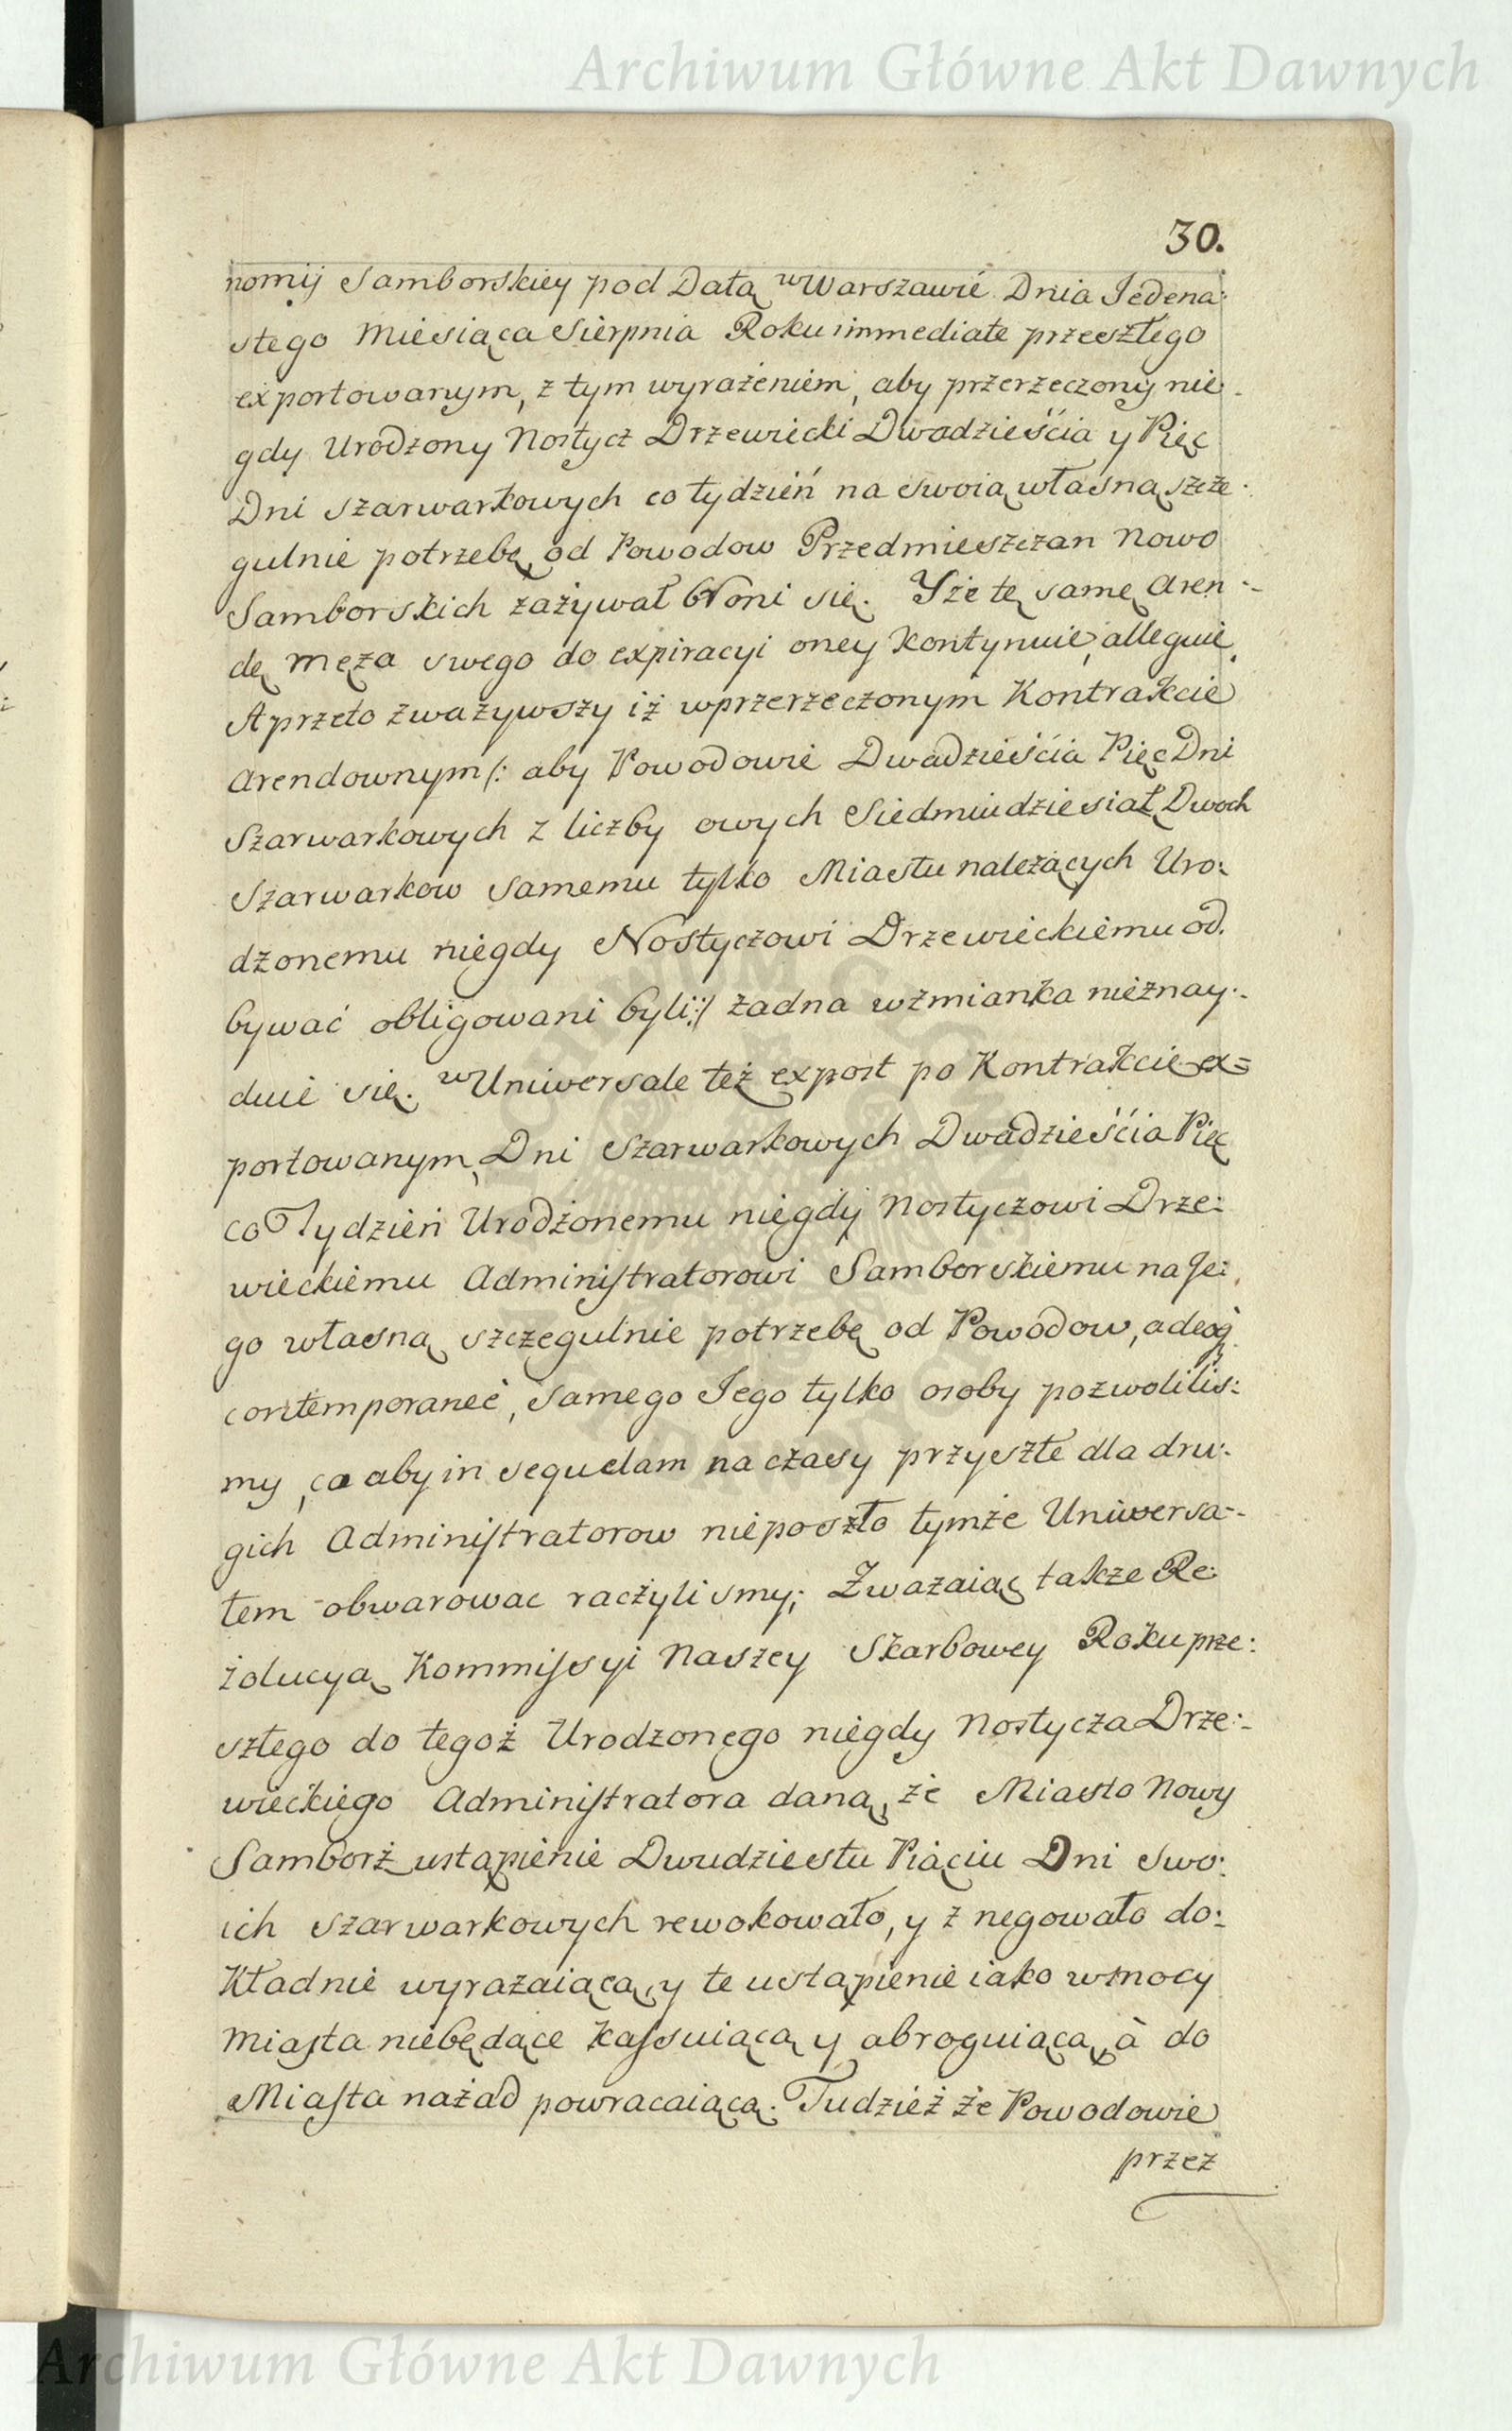 Archiwum Główne Akt Dawnych
30.
nomij Samborskiey pod Datą w Warszawie Dnia Jedena:
stego Miesiąca Sierpnia Roku immediate przeszłego
exportowanym, z tym wyrażeniem, aby przerzeczony nie:
gdy Urodzony Nostycz Drzewiecki Dwadzieścia y Pięc
Dni szarwarkowych co tydzień na swoią własną szcze:
gulnie potrzebę od Powodow Przedmieszczan Nowo
Samborskich zażywał broni się. Yże tę samę Aren:
dę męża swego do expiracyi oney kontynuie, alleguie.
A przeto zważywszy iż w przerzeczonym Kontrakcie
Arendownym /: aby Powodowie Dwadzieścia Pięc Dni
Szarwarkowych z liczby owych Siedmiudziesiąt Dwoch
Szarwarkow samemu tylko Miastu należących Uro:
dzonemu niegdy Nostyczowi Drzewieckiemu od:
bywać obligowani byli :/ żadna wzmianka nieznay:
duie się. w Uniwersale też expost po Kontrakcie ex=
portowanym, Dni Szarwarkowych Dwadzieścia Pięc
co Tydzień Urodzonemu niegdy Nostyczowi Drze:
wieckiemu Administratorowi Samborskiemu na Je:
go własną szczegulnie potrzebę od Powodow, adeoq
contemporaneè, samego Jego tylko osoby pozwolilis:
my, co aby in sequelam na czasy przyszłe dla dru:
gich Administratorow nieposzło tymże Uniwersa:
łem obwarowac raczylismy; Zważaiąc także Re:
zolucyą Kommissyi Naszey Skarbowey Roku prze:
szłego do tegoż Urodzonego niegdy Nostycza Drze:
wieckiego Administratora daną, że Miasto Nowy
Samborż ustąpienie Dwudziestu Piąciu Dni swo:
ich szarwarkowych rewokowało, y znegowało do:
kładnie wyrażaiącą, y te ustąpienie iako w mocy
Miasta niebędące kassuiącą y abroguiącą, à do
Miasta nazad powracaiącą. Tudzież że Powodowie
przez
Archiwum Główne Akt Dawnych